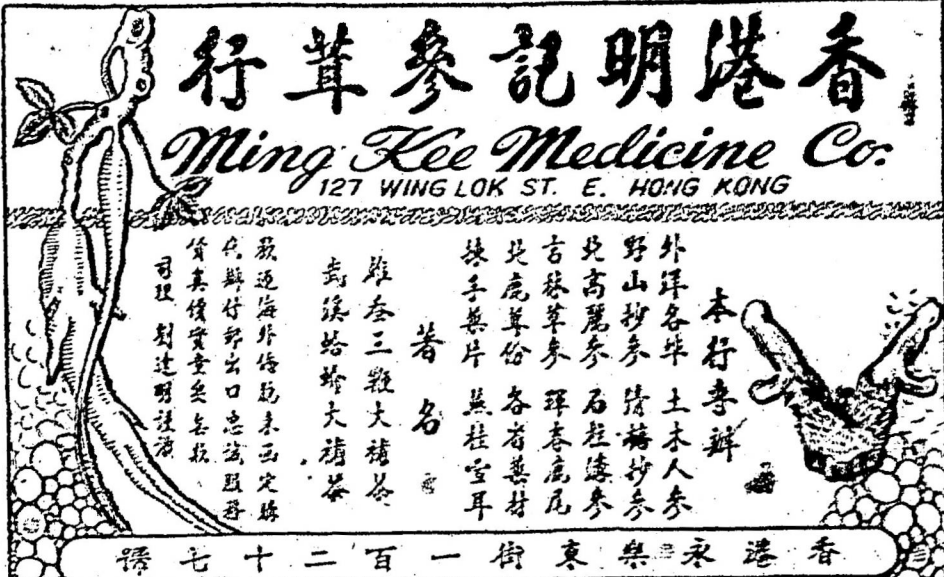 香港明記參茸行
Ming Kee Medicine Co.
127 WING LOK ST. E. HONG KONG
本行專辦
外洋名埠 土木人參
野山抄參 抄參
北高麗參 石柱參
吉林草參 琿春鹿尾
北鹿茸 各省藥材
桂雪耳
著名
三鞭大補茶
蛤蚧大補茶
歡迎海外僑胞來函定購
代辦付郵出口忠誠服務
貨真價實童叟無欺
司理 劉達明謹啟
香港永樂東街一百二十七號